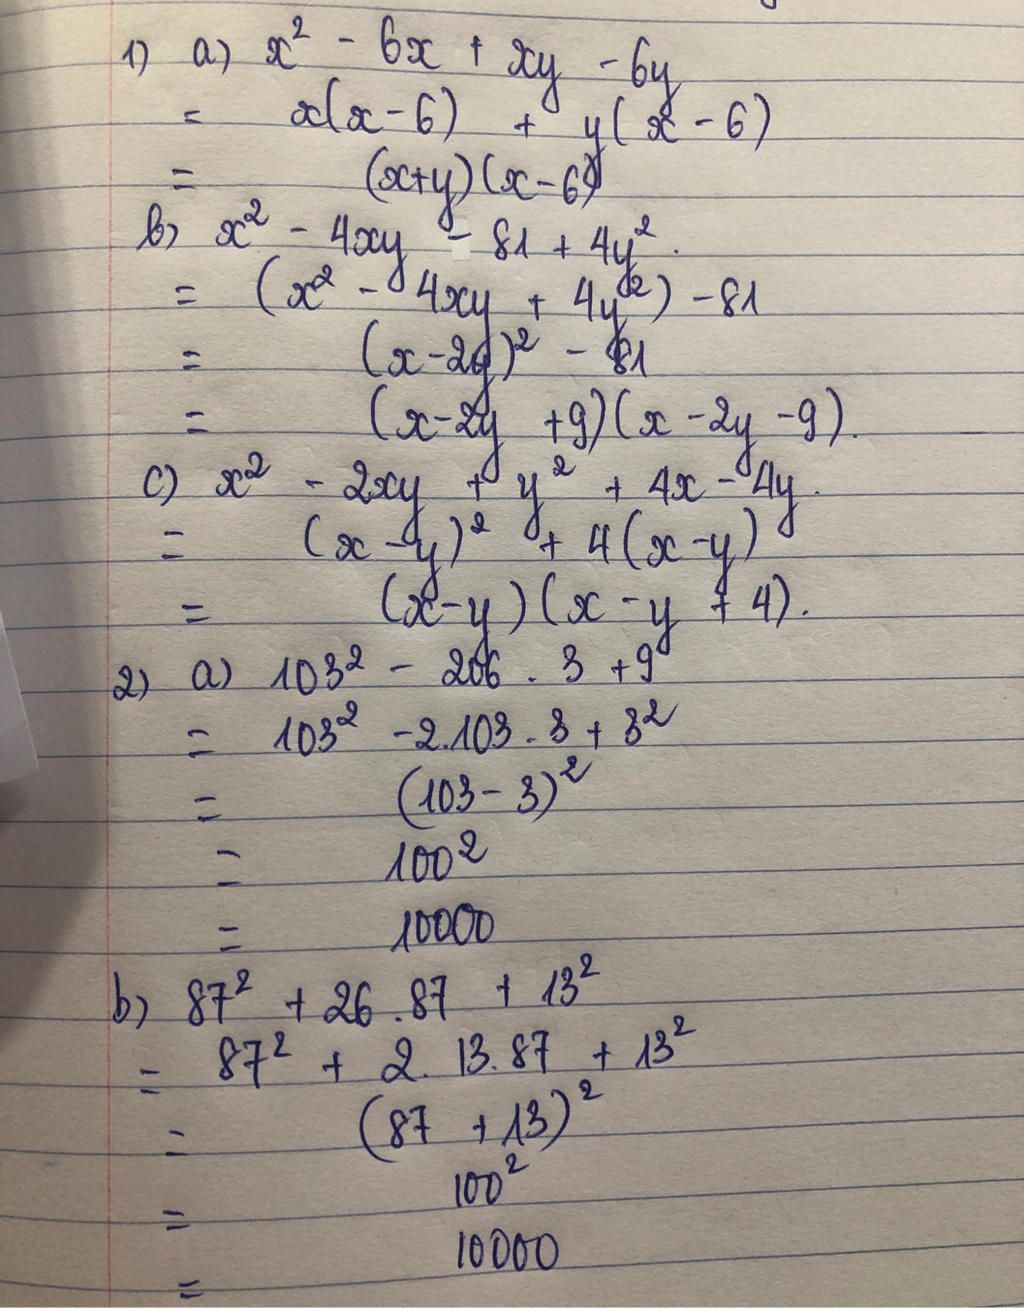 1) a) x² - 6x + xy - 6y
= x(x - 6) + y(x - 6)
= (x+y)(x-6)
b) x² - 4xy - 81 + 4y².
= (x² - 4xy + 4y²) - 81
= (x-2y)² - 81
= (x-2y +9)(x -2y -9).
c) x² - 2xy + y² + 4x - 4y.
= (x-y)² + 4(x-y)
= (x-y)(x-y + 4).
2) a) 103² - 206 . 3 + 9
= 103² - 2.103 . 3 + 3²
= (103 - 3)²
= 100²
= 10000
b) 87² + 26 . 87 + 13²
= 87² + 2. 13. 87 + 13²
= (87 + 13)²
= 100²
= 10000